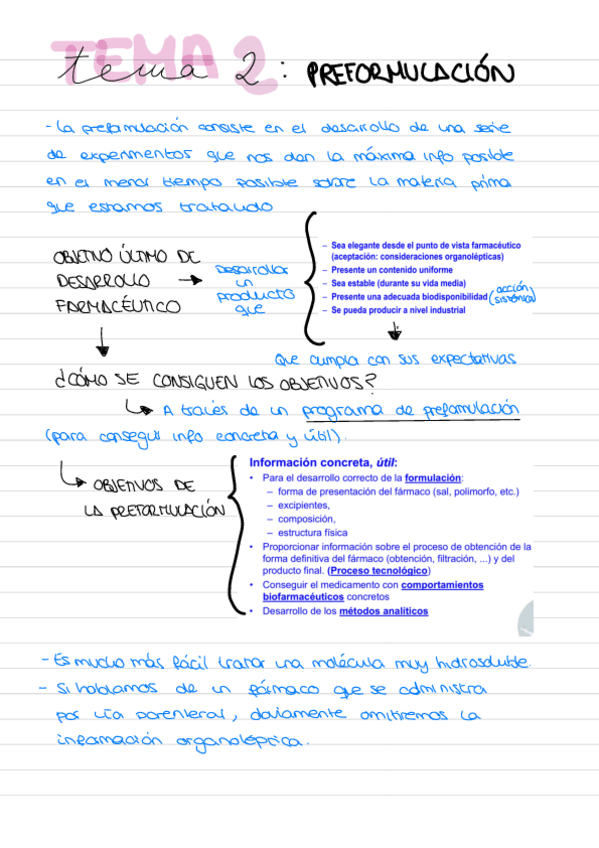 TEMA 2
tema 2: PREFORMULACIÓN
- La preformulación consiste en el desarrollo de una serie
de experimentos que nos dan la máxima info posible
en el menor tiempo posible sobre la materia prima
que estamos tratando
OBJETIVO ÚLTIMO DE
DESARROLLO
FARMACÉUTICO
desarrollar
un
producto
que
– Sea elegante desde el punto de vista farmacéutico
(aceptación: consideraciones organolépticas)
– Presente un contenido uniforme
– Sea estable (durante su vida media)
– Presente una adecuada biodisponibilidad (acción
sistémica)
– Se pueda producir a nivel industrial
Que cumpla con sus expectativas
¿CÓMO SE CONSIGUEN LOS OBJETIVOS?
A través de un programa de preformulación
(para conseguir info concreta y útil).
OBJETIVOS DE
LA PREFORMULACIÓN
Información concreta, útil:
• Para el desarrollo correcto de la formulación:
– forma de presentación del fármaco (sal, polimorfo, etc.)
– excipientes,
– composición,
– estructura física
• Proporcionar información sobre el proceso de obtención de la
forma definitiva del fármaco (obtención, filtración, ...) y del
producto final. (Proceso tecnológico)
• Conseguir el medicamento con comportamientos
biofarmacéuticos concretos
• Desarrollo de los métodos analíticos
- Es mucho más fácil tratar una molécula muy hidrosoluble.
- Si hablamos de un fármaco que se administra
por vía parenteral, obviamente omitiremos la
información organoléptica.